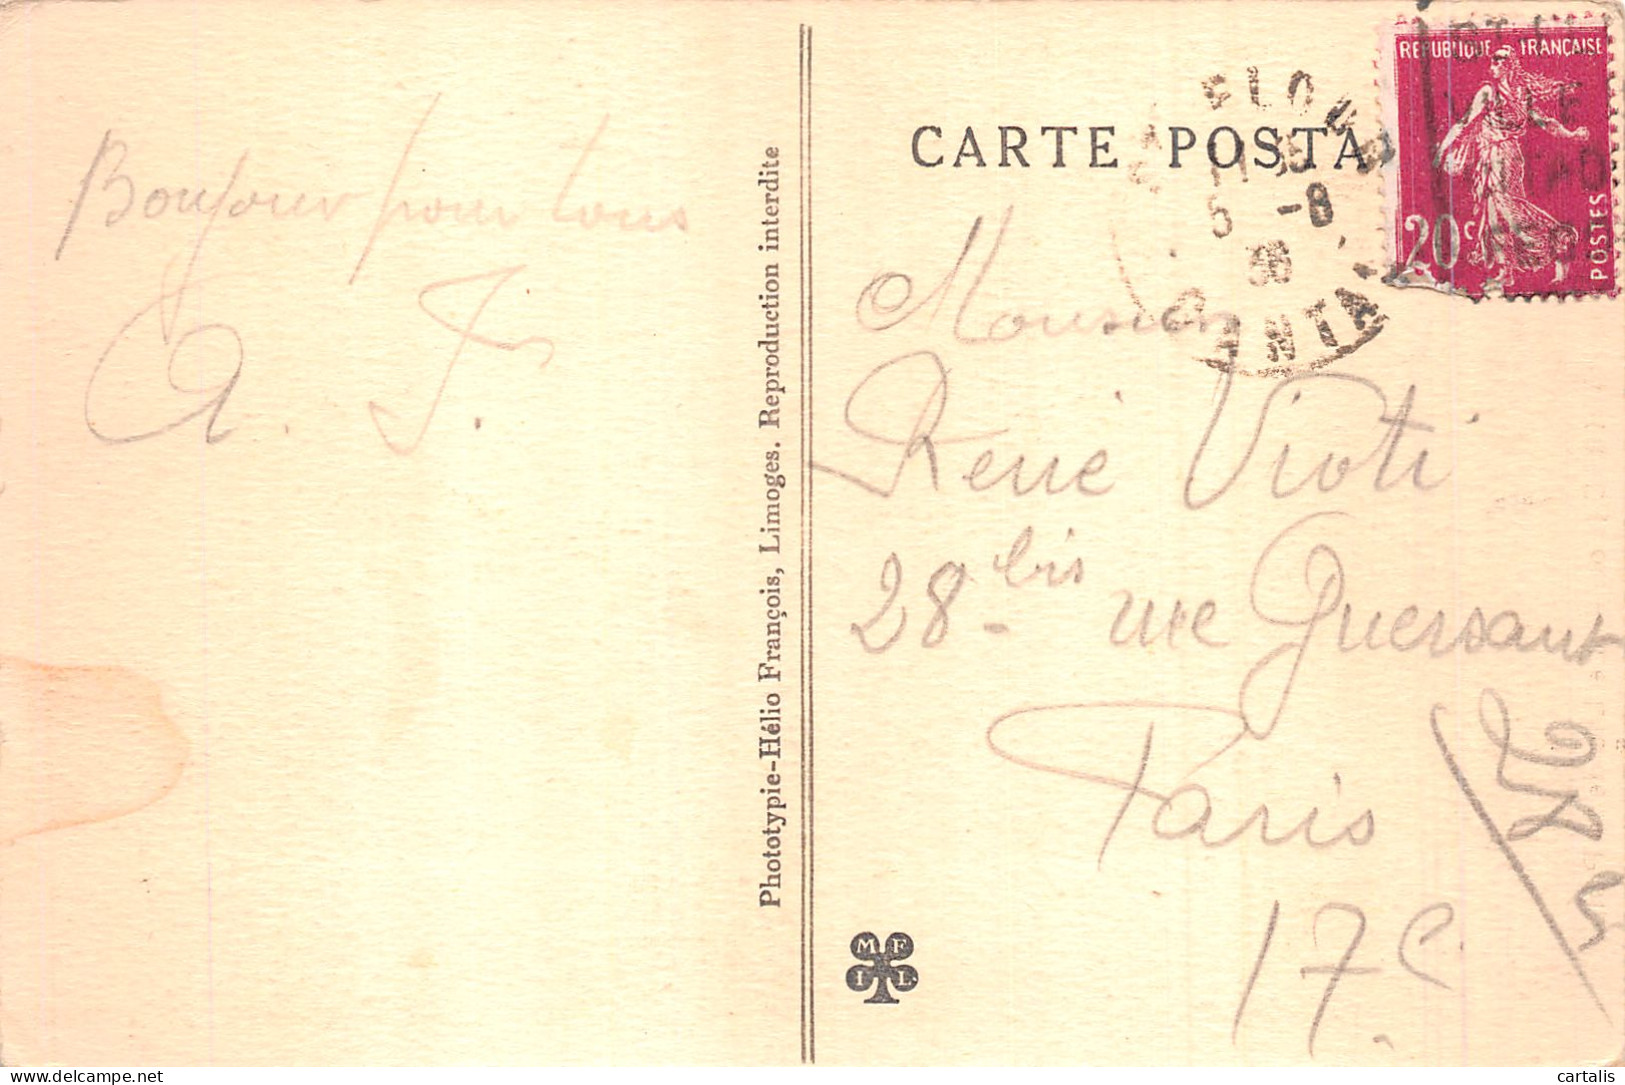 Bonjour pour tous
A. J.
Phototypie-Hélio François, Limoges. Reproduction interdite
CARTE POSTA
RÉPUBLIQUE FRANÇAISE
20c
POSTES
5 -8
36
Monsieur
René Vioti
28 bis rue Guersant
Paris
17e
M F
I L
cartalis